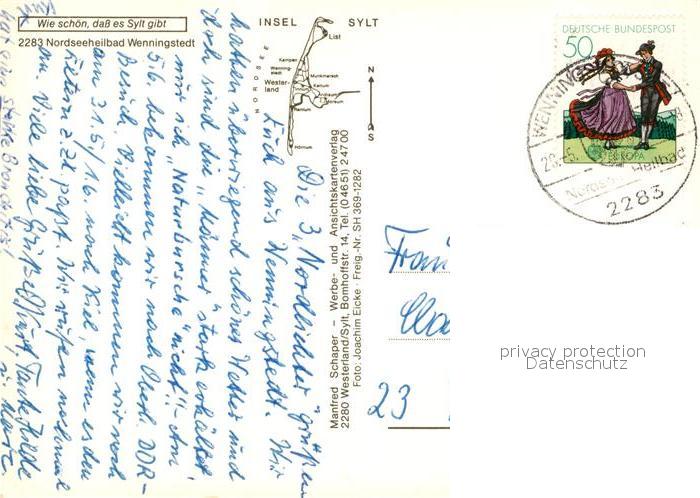 Wie schön, daß es Sylt gibt
2283 Nordseeheilbad Wenningstedt
INSEL SYLT
List
Kampen
Wenning-
stedt
Munkmarsch
Wester-
land
Keitum
Archsum
Morsum
Rantum
Hörnum
NORDSEE
N
S
Manfred Schaper – Werbe- und Ansichtskartenverlag
2280 Westerland/Sylt, Bomhoffstr. 14, Tel. (0 46 51) 2 47 00
Foto: Joachim Eicke · Freig.-Nr. SH 369-1282
DEUTSCHE BUNDESPOST
50
EUROPA
WENNING
28.-5.
Nordsee Heilbad
2283
Die 3 „Nordlichter" grüßen
Euch aus Wenningstedt. Wir
hatten überwiegend schönes Wetter und
doch sind die „Männer" stark erkältet,
nur ich „Naturbursche" nicht! - Am
5/6 bekommen wir nach Oberl. DDR-
Besuch. Vielleicht kommen wir noch
am 31.5/1.6 nach Kiel, wenn es den
Eltern z.Zt. paßt. Wir rufen nochmal
an. Viele liebe Grüße
Tante Hilde
u. Moritz.
hat eine starke Bronchitis!
Frau
23
privacy protection
Datenschutz